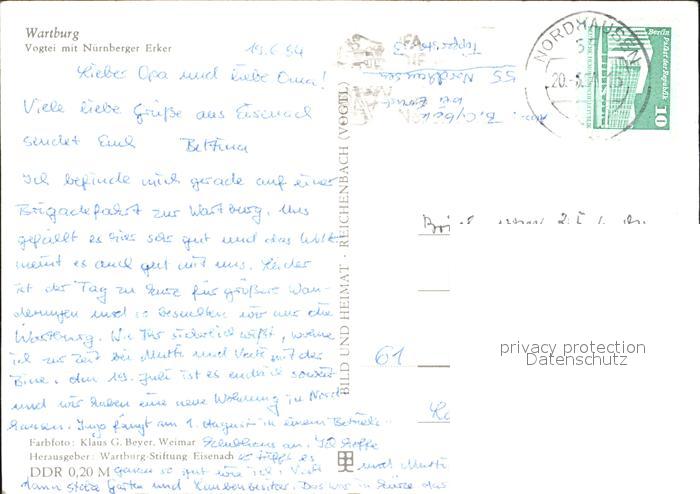 Wartburg
Vogtei mit Nürnberger Erker
19.6.84
Lieber Opa und liebe Oma!
Viele liebe Grüße aus Eisenach
sendet Euch Bettina
Ich befinde mich gerade auf einer
Brigadefahrt zur Wartburg. Uns
gefällt es hier sehr gut und das
meint es auch gut mit uns. Leider
ist der Tag zu kurz für größere Wan-
derungen und so besuchen wir nur die
Wartburg. Wie Ihr sicherlich wißt, wohne
ich zur Zeit bei Mutti und Vati mit der
Bine. Am 19. Juli ist es endlich soweit
und wir haben eine neue Wohnung in Nord-
hausen. Ingo fängt am 1. August in einem Betriebs-
Farbfoto: Klaus G. Beyer, Weimar
an. Ich hoffe
Herausgeber: Wartburg-Stiftung Eisenach
es
DDR 0,20 M
so gut wie ich.
und Mutti
dann Garten und Das war in Kürze das
BILD UND HEIMAT · REICHENBACH (VOGTL)
Abs.: B.
bei
55 Nordhausen
NORDHAUSEN
20.
Berlin Palast der Republik
10
61
privacy protection
Datenschutz